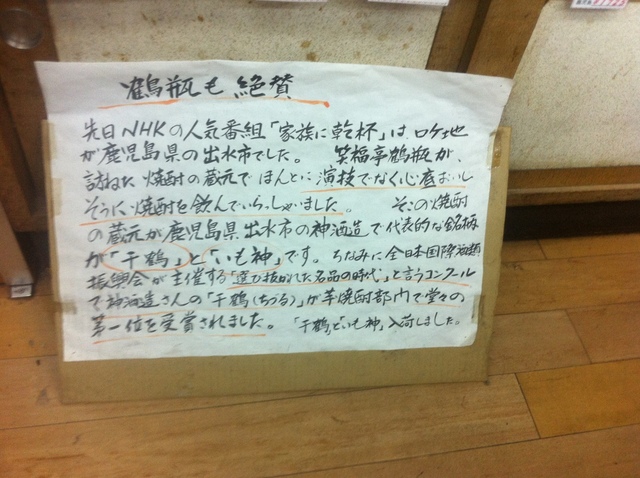 鶴瓶も絶賛
先日NHKの人気番組「家族に乾杯」は、ロケ地
が鹿児島県の出水市でした。 笑福亭鶴瓶が、
訪ねた焼酎の蔵元でほんとに演技でなく心底おいし
そうに焼酎を飲んでいらっしゃいました。 その焼酎
の蔵元が鹿児島県出水市の神酒造で代表的な銘柄
が「千鶴」と「いも神」です。ちなみに全日本国際酒類
振興会が主催する「選び抜かれた名品の時代」と言うコンクール
で神酒造さんの「千鶴(ちづる)」が芋焼酎部門で堂々の
第一位を受賞されました。「千鶴」と「いも神」入荷しました。